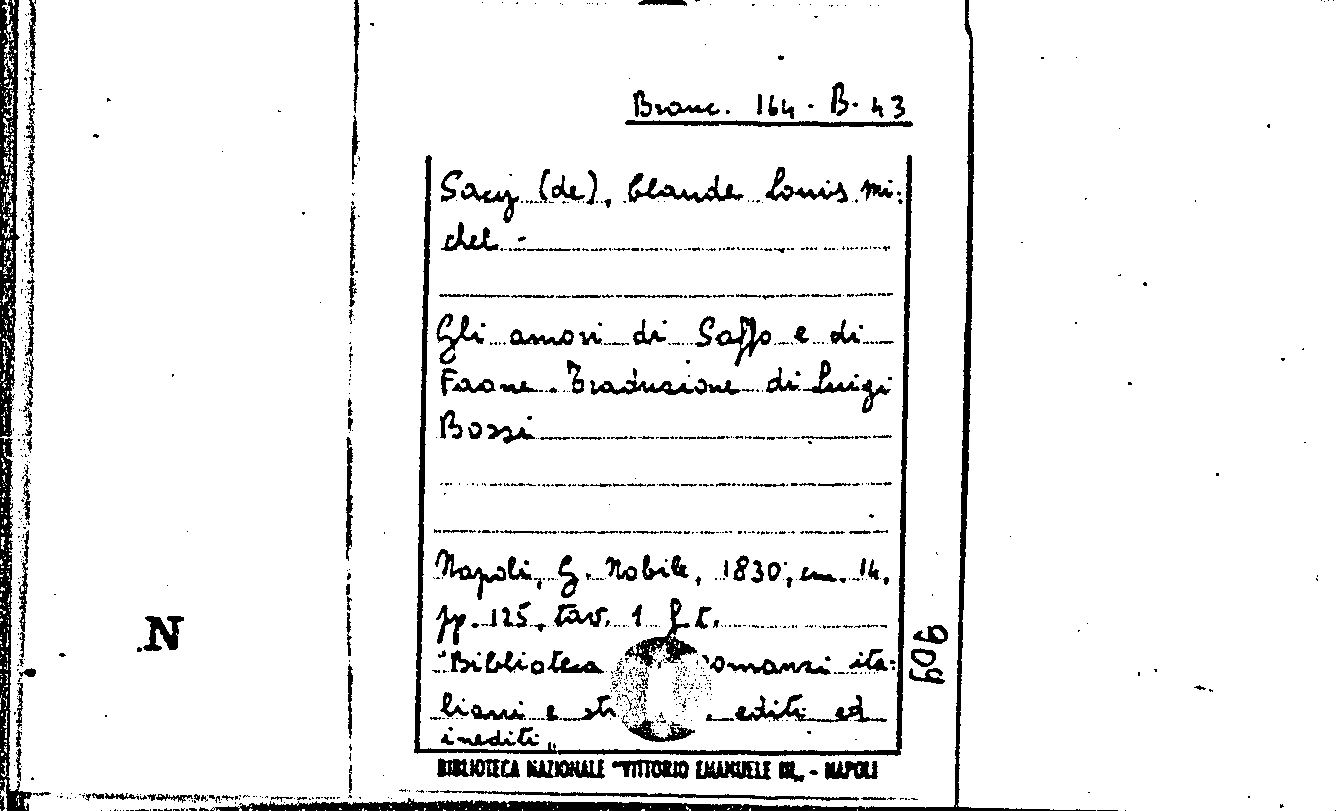 Branc. 164 - B. 43
Sacy (de), Claude Louis Mi-
chel -
Gli amori di Saffo e di
Faone. Traduzione di Luigi
Bossi
Napoli, G. Nobile, 1830, cm. 14,
pp. 125, tav. 1 f.t.
"Biblioteca omanzi ita-
liani e str , editi ed
inediti"
BIBLIOTECA NAZIONALE "VITTORIO EMANUELE III" - NAPOLI
N
909